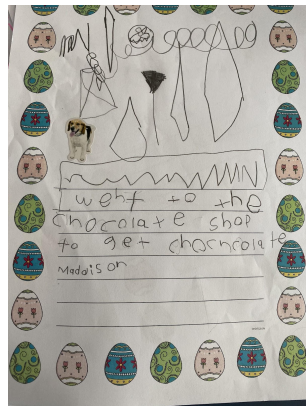 I went to the
chocolate shop
to get chochcolate
Maddison